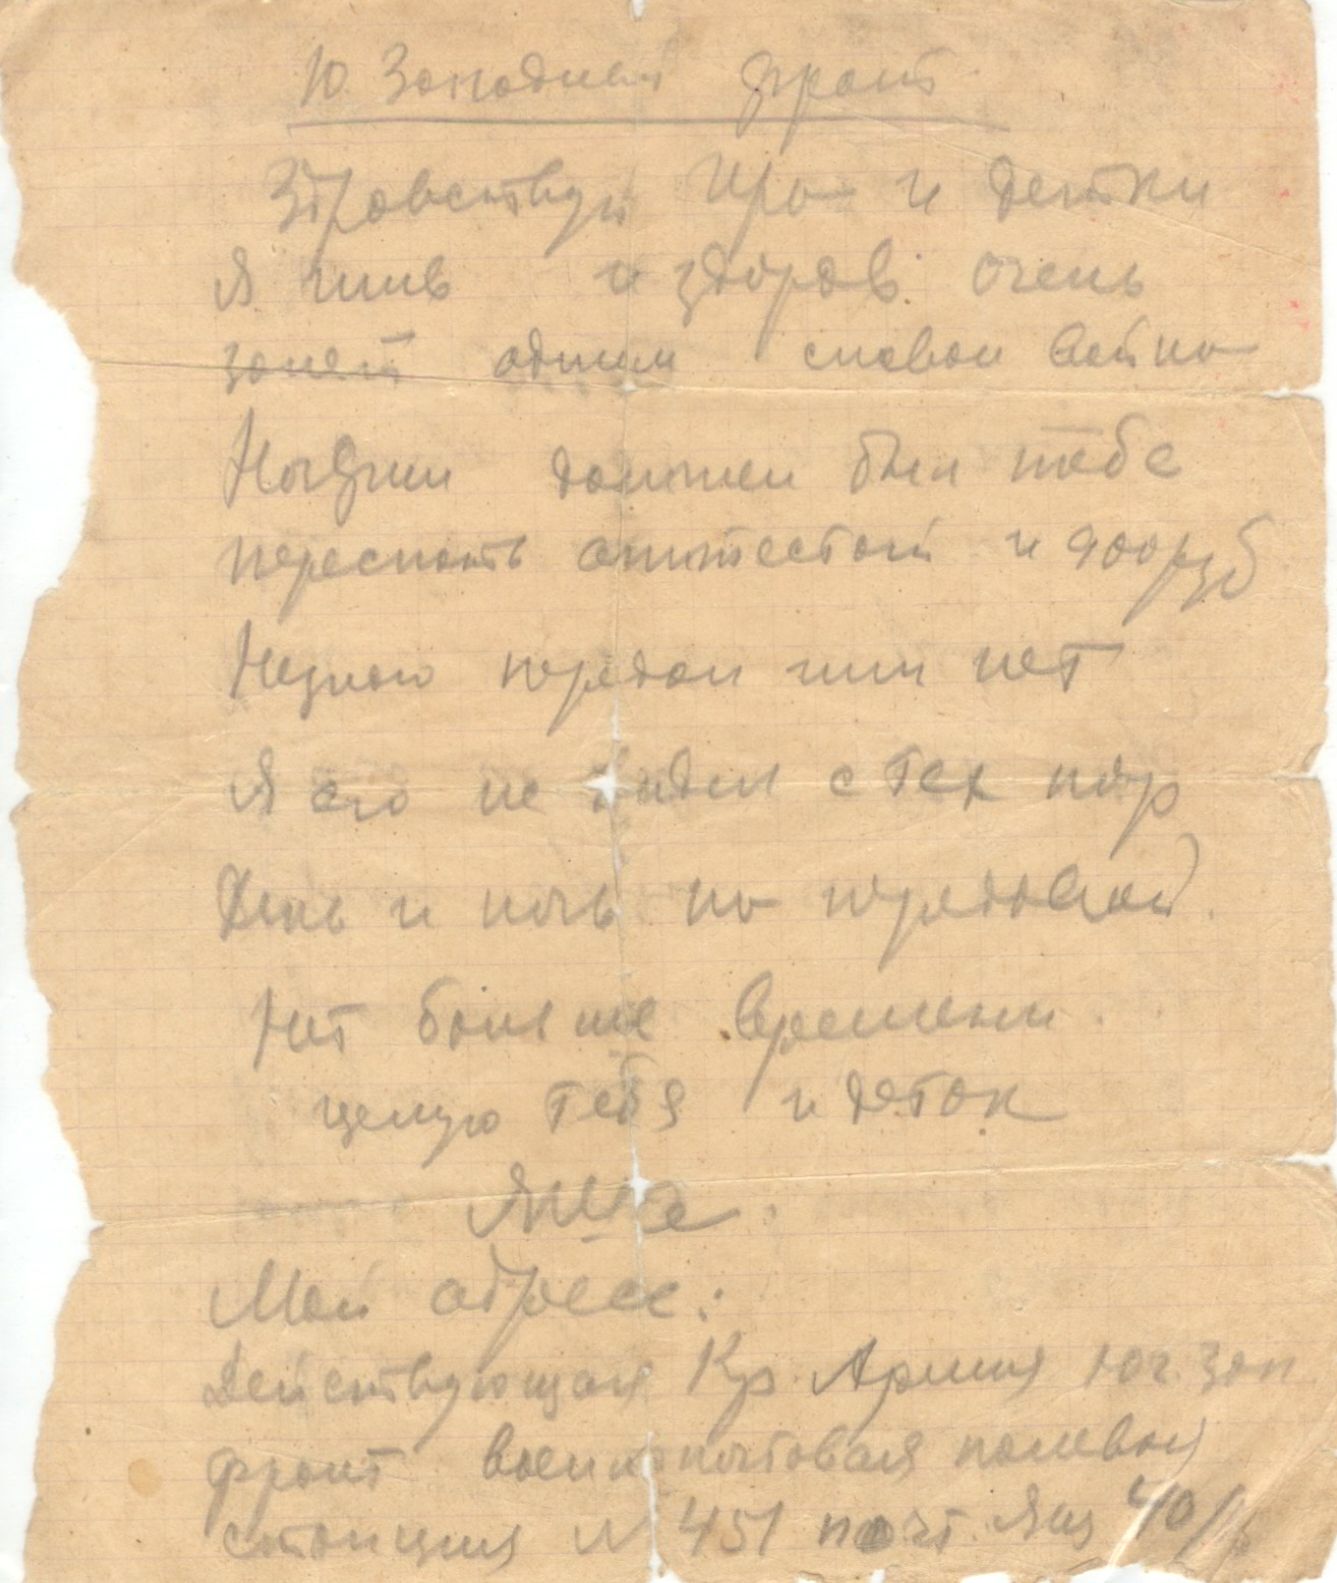 Ю. Западный фронт.
Здравствуй Ира и детки
Я жив и здоров. очень
занят одним словом война
должен был тебе
переслать аттестат и 900 руб
Незнаю передал или нет
Я его не видел с тех пор
День и ночь на передовой.
Нет больше времени.
целую тебя и деток
Яша.
Мой адрес:
Действующая Кр. Армия юг. зап
фронт военнопочтовая полевая
станция N 451 почт. Ящ 40/